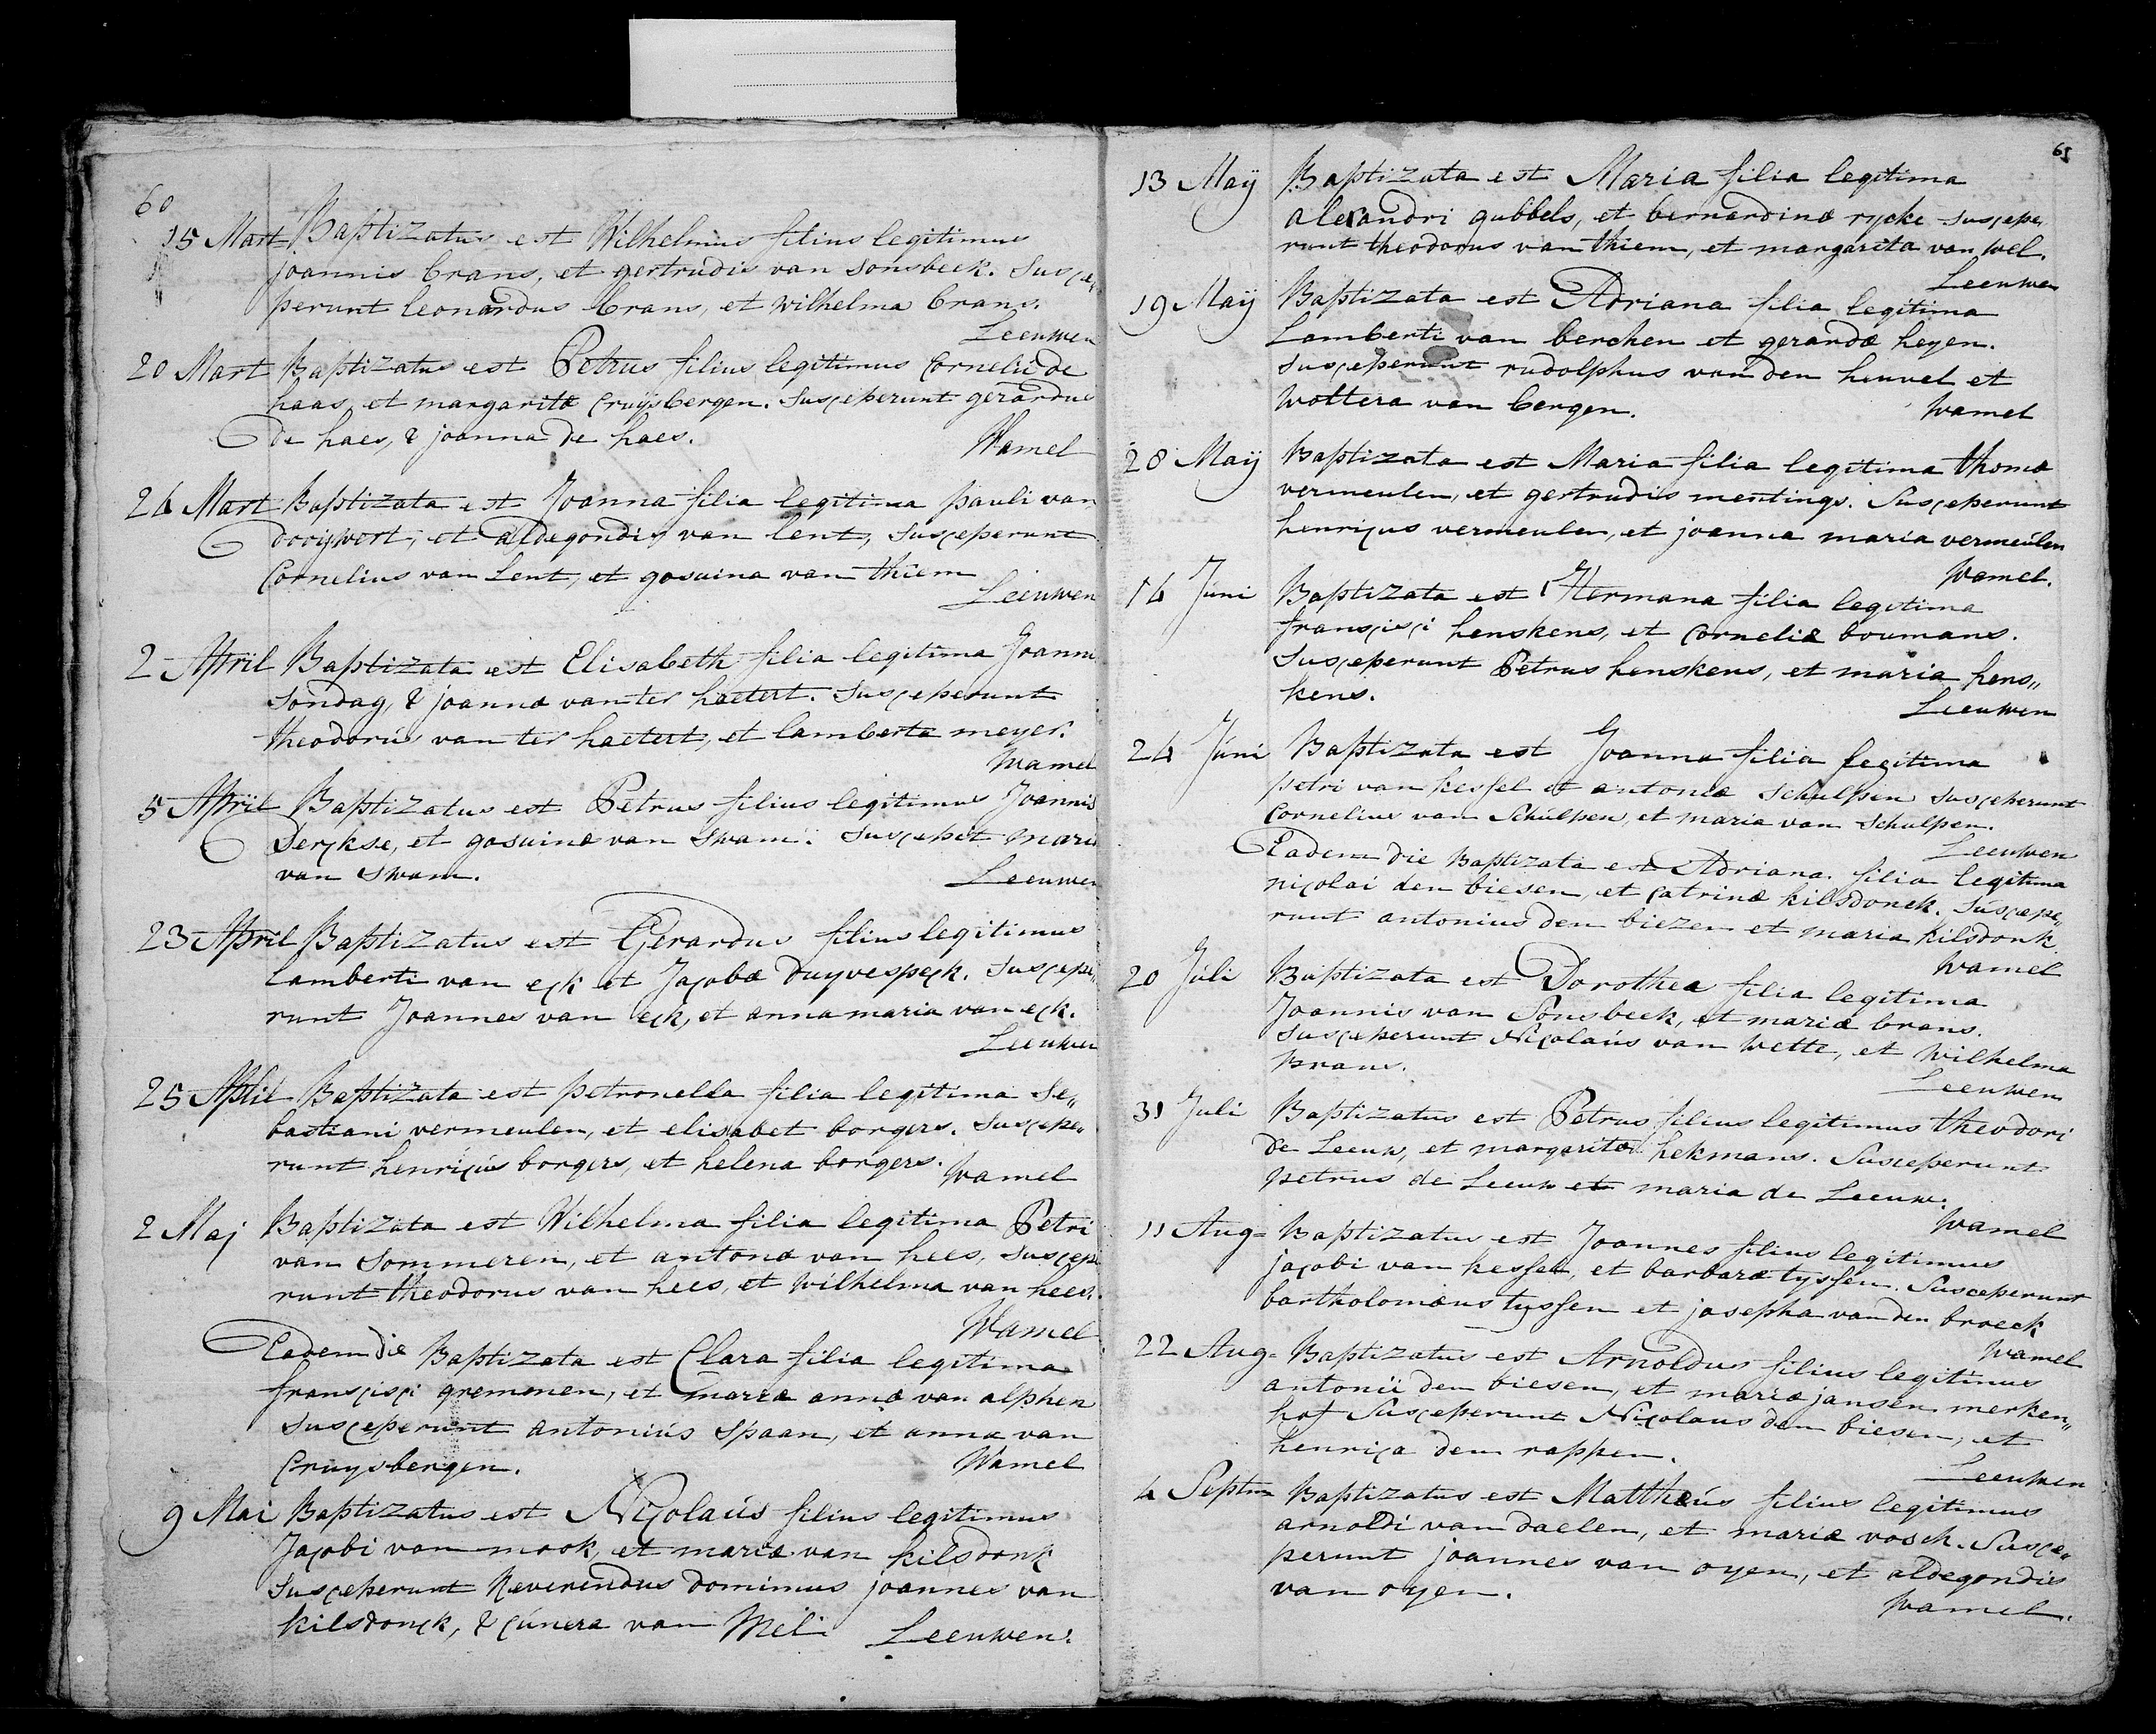 60
15 Mart Baptizatus est Wilhelmus filius legitimus
joannis brans, et gertrudis van sonsbeek. Susce„
perunt leonardus brans, et wilhelma brans.
Leeuwen
20 Mart Baptizatus est Petrus filius legitimus Cornelii de
haas, et margaritæ Cruijsbergen. Susceperunt gerardus
de haes, & joanna de haes.
Wamel
24 Mart Baptizata est Joanna filia legitima pauli van
dooijwert, et aldegondis van lent, Susceperunt
Cornelius van Lent, et gosuina van thiem
Leeuwen
2 April Baptizata est Elisabeth filia legitima Joannis
Sondag, & joannæ van ter haetert. Susceperunt
theodorus van ter haetert, et lamberta meyer.
Wamel
5 April Baptizatus est Petrus filius legitimus Joannis
Derckse, et gosuinæ van Swam. Suscepit maria
van Swam.
Leeuwen
23 April Baptizatus est Gerardus filius legitimus
Lamberti van eck et Jacobæ duyvespeck. Suscepe„
runt Joannes van eck, et anna maria van eck.
Leeuwen
25 April Baptizata est petronella filia legitima Se„
bastiani vermeulen, et elisabet borgers. Suscepe„
runt henricus borgers, et helena borgers.
Wamel
2 Maj Baptizata est Wilhelma filia legitima Petri
van Sommeren, et antonæ van hees, Suscepe
runt theodorus van hees, et wilhelma van hees.
Wamel
Eadem die Baptizata est Clara filia legitima
francisci gremmen, et mariæ annæ van alphen
Susceperunt antonius Spaan, et anna van
Cruysbergen.
Wamel
9 Mai Baptizatus est Nicolaus filius legitimus
Jacobi van mook, et mariæ van kilsdonk
Susceperunt Reverendus dominus joannes van
kilsdonck, & cunera van Mil.
Leeuwen.
61
13 Maÿ Baptizata est Maria filia legitima
alexandri gubbels, et bernardinæ rycke Suscepe„
runt theodorus van thiem, et margarita van wel.
Leeuwen
19 Maÿ Baptizata est Adriana filia legitima
Lamberti van berchen et gerardæ heyen.
Susceperunt rudolphus van den heuvel et
woltera van bergen.
Wamel
28 Maÿ Baptizata est Maria filia legitima thomæ
vermeulen, et gertrudis mentings. Susceperunt
henricus vermeulen, et joanna maria vermeulen
Wamel.
14 Juni Baptizata est Hermana filia legitima
francisci henskens, et Corneliæ boumans.
Susceperunt Petrus henskens, et maria hens„
kens.
Leeuwen
24 Juni Baptizata est Joanna filia legitima
petri van kessel et antoniæ Schulpen Susceperunt
Cornelius van Schulpen, et maria van Schulpen.
Leeuwen
Eadem die Baptizata est Adriana filia legitima
nicolai den biesen, et catrinæ kilsdonck. Suscepe„
runt antonius den biezen et maria kilsdonk
Wamel
20 Juli Baptizata est Dorothea filia legitima
Joannis van Sonsbeek, et mariæ brans.
Susceperunt Nicolaus van wette, et Wilhelma
Brans.
Leeuwen
31 Juli Baptizatus est Petrus filius legitimus theodori
de Leeuw, et margaritæ hekmans. Susceperunt
petrus de Leeuw et maria de Leeuw.
Wamel
11 Aug= Baptizatus est Joannes filius legitimus
jacobi van kessel, et barbaræ tyssen. Susceperunt
bartholomæus tyssen et josepha van den broeck
Wamel
22 Aug= Baptizatus est Arnoldus filius legitimus
antonii den biesen, et mariæ jansen merken„
hof Susceperunt Nicolaus den biesen, et
henrica den rappen.
Leeuwen
4 Septm Baptizatus est Mattheus filius legitimus
arnoldi van daelen, et mariæ vosch. Susce„
perunt joannes van oyen, et aldegondis
van oyen.
Wamel.